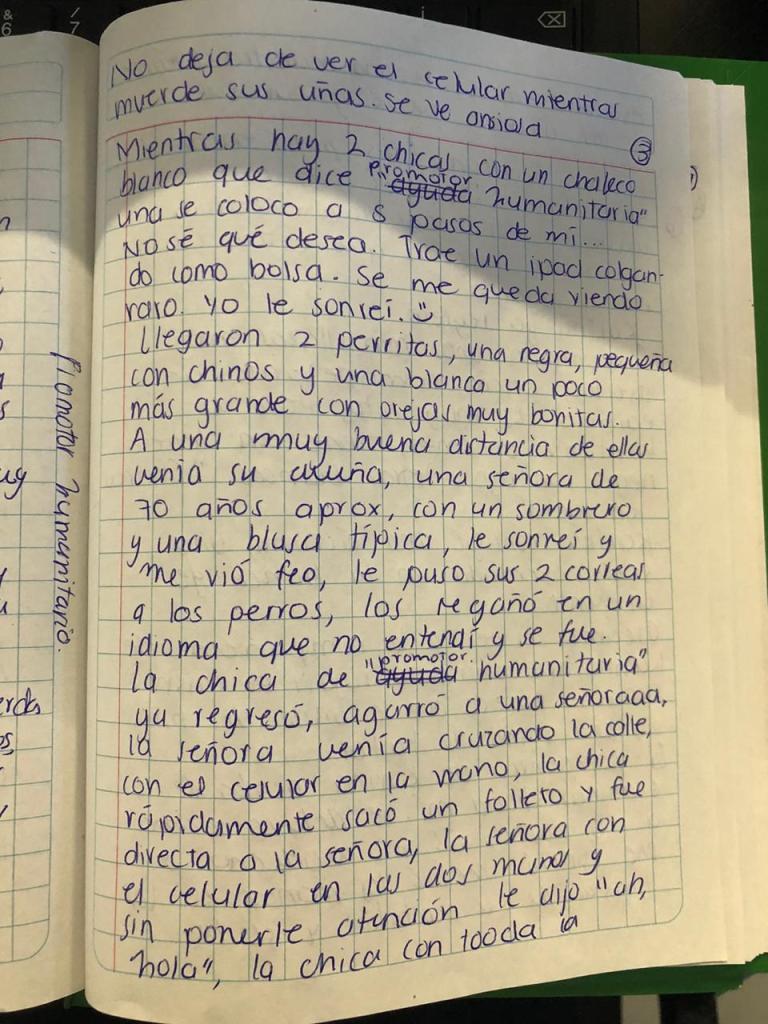 No deja de ver el celular mientras
muerde sus uñas. Se ve ansiosa
③
Mientras hay 2 chicas con un chaleco
blanco que dice "promotor ayuda humanitaria"
una se coloco a 8 pasos de mi...
No sé qué desea. Trae un ipad colgan-
do como bolsa. Se me queda viendo
raro. Yo le sonreí.
Llegaron 2 perritas, una negra, pequeña
con chinos y una blanca un poco
más grande con orejas muy bonitas.
A una muy buena distancia de ellas
venia su dueña, una señora de
70 años aprox, con un sombrero
y una blusa típica, le sonreí y
me vió feo, le puso sus 2 correas
a los perros, los regañó en un
idioma que no entendí y se fue.
La chica de "promotor ayuda humanitaria"
ya regresó, agarró a una señoraaa,
la señora venía cruzando la calle,
con el celular en la mano, la chica
rápidamente sacó un folleto y fue
directa a la señora, la señora con
el celular en las dos manos y
sin ponerle atención le dijo "ah,
hola", la chica con tooda la
Promotor humanitario.